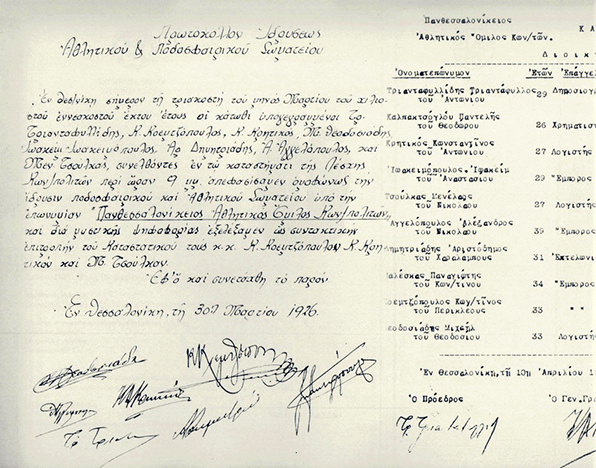 Πρωτοκολλον Ιδρυσεως
Αθλητικού & Ποδοσφαιρικού Σωματείου
Εν Θεσ/νίκη σήμερον τη τριακοστή του μηνός Μαρτίου του χιλιο-
στού εννεακοστού έκτου έτους οι κάτωθι υπογεγραμμένοι Τρ.
Τριανταφυλλίδης, Κ. Κοεμτζόπουλος, Κ. Κρητικός, Μ. Θεοδοσιάδης,
Ιωακείμ Ιωακειμόπουλος, Αρ. Δημητριάδης, Α. Αγγελόπουλος, και
Μεν. Τσούλκας, συνελθόντες εν τω καταστήματι της Λέσχης
Κων/πολιτών περί ώραν 9 μμ. απεφάσισαμεν ομοφώνως την
ίδρυσιν ποδοσφαιρικού και Αθλητικού Σωματείου υπό την
επωνυμίαν Πανθεσσαλονίκειος Αθλητικός Όμιλος Κων/πολιτών
και διά μυστικής ψηφοφορίας εξελέξαμεν ως συντακτικήν
επιτροπήν του Καταστατικού τους κ.κ. Κ. Κοεμτζόπουλον Κ. Κρη-
τικόν και Μ. Τσούλκαν.
Εφ' ώ και συνετάχθη το παρόν
Εν Θεσσαλονίκη, τη 30η Μαρτίου 1926.
Πανθεσσαλονίκειος
Ἀθλητικός Ὅμιλος Κων/τῶν.
Κ Α
Δ ι ο ι κ
Ὀνοματεπώνυμον Ἐτῶν Ἐπάγγελ
Τριανταφυλλίδης Τριαντάφυλλος 29 Δημοσιογ
τοῦ Ἀντωνίου
Καλπακτσόγλου Παντελῆς
τοῦ Θεοδώρου 26 Χρηματιστ
Κρητικός Κωνσταντῖνος
τοῦ Ἀντωνίου 27 Λογιστής
Ἰωακειμόπουλος Ἰωακείμ
τοῦ Ἀναστασίου 29 "Εμπορος
Τσούλκας Μενέλαος
τοῦ Νικολάου 27 Λογιστής
Ἀγγελόπουλος Ἀλέξανδρος
τοῦ Νικολάου 39 "Εμπορος
Δημητριάδης Ἀριστόδημος
τοῦ Χαραλάμπους 31 Ἐκτελωνι
Παναγιώτης
τοῦ Κων/τίνου 34 "Εμπορος
Κοεμτζόπουλος Κων/τῖνος
τοῦ Περικλέους 33 " "
Θεοδοσιάδης Μιχαήλ
τοῦ Θεοδοσίου 33 Λογιστής
Ἐν Θεσσαλονίκῃ, τῇ 10ῃ Ἀπριλίου 1
Ὁ Πρόεδρος Ὁ Γεν.Γρα